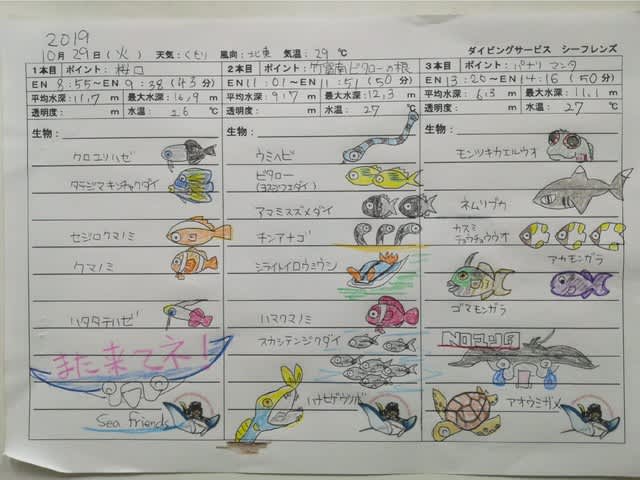 2019
10月29日(火) 天気:くもり 風向:北東 気温:29℃ ダイビングサービス シーフレンズ
1本目 ポイント:桜口
EN 8:55〜EN 9:38(43分)
平均水深:11,7m 最大水深:16,9m
透明度: m 水温:26℃
生物:
クロユリハゼ
タテジマキンチャクダイ
セジロクマノミ
クマノミ
ハタタテハゼ
また来てネ!
Sea friends
2本目 ポイント:竹富南ビタローの根
EN 11:01〜EN 11:51(50分)
平均水深:9,7m 最大水深:12,3m
透明度: m 水温:27℃
生物:
ウミヘビ
ビタロー
(ヨスジフエダイ)
アマミスズメダイ
チンアナゴ
シライトイロウミウシ
ハマクマノミ
スカシテンジクダイ
ハナヒゲウツボ
3本目 ポイント:パナリ マンタ
EN 13:26〜EN 14:16(50分)
平均水深:6,3m 最大水深:11,1m
透明度: m 水温:27℃
生物:
モンツキカエルウオ
ネムリブカ
カスミ
チョウチョウウオ
アカモンガラ
ゴマモンガラ
アオウミガメ